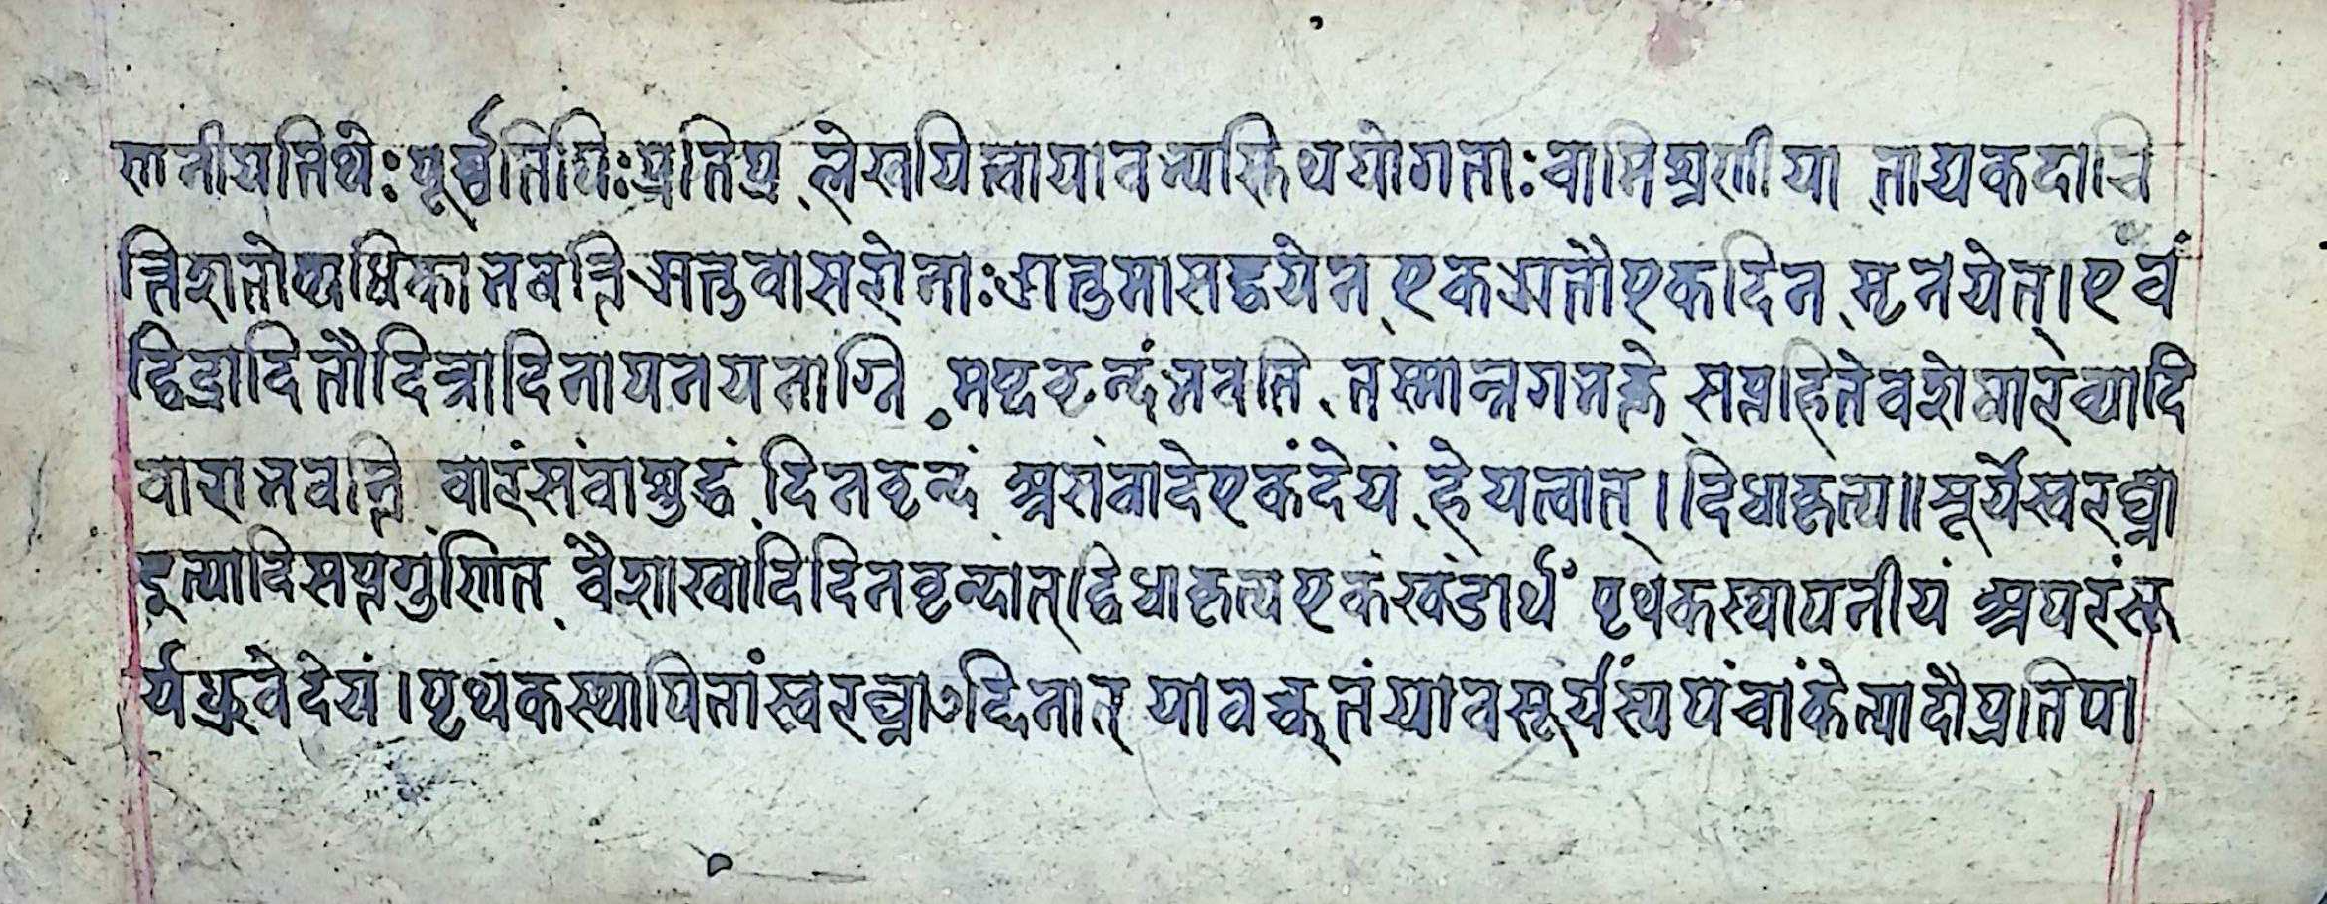 नीयतिथेः पूर्व्वतिथिः प्रतिप्र लेखयित्वा यावन्त्यस्तिथयोगताः वामिश्रणीया ताद्यकदाचि
त्रिंशतोप्यधिका भवन्ति ऋतुवासरोनाः ऋतुमासद्वयेन एकऋतौ एकदिन मृनयेत्। एवं
द्वित्रादितौ दित्रादिनापनयनाग्नि मष्टवृन्दं भवति तस्मान्नगभक्ते सप्तहितेवशेषारव्यादि
वारा भवन्ति वारं संवाशुद्धं दिनवृन्दं असंवादे एकं देयं हेयत्वात्। दिधाकृत्य॥ सूर्येस्वरघ्ना
इत्यादि सप्तगुणित वैशाखादिदिनवृन्दात् द्विधाकृत्य एकं खंडार्थं पृथकस्थापनीयं अपरं सू
र्यध्रुवेदेयं। पृथकस्थापितां स्वरघ्ना दिनात् यावत्कृतं यावसूर्यस्य पंचांकेत्यादौ प्रतिपा